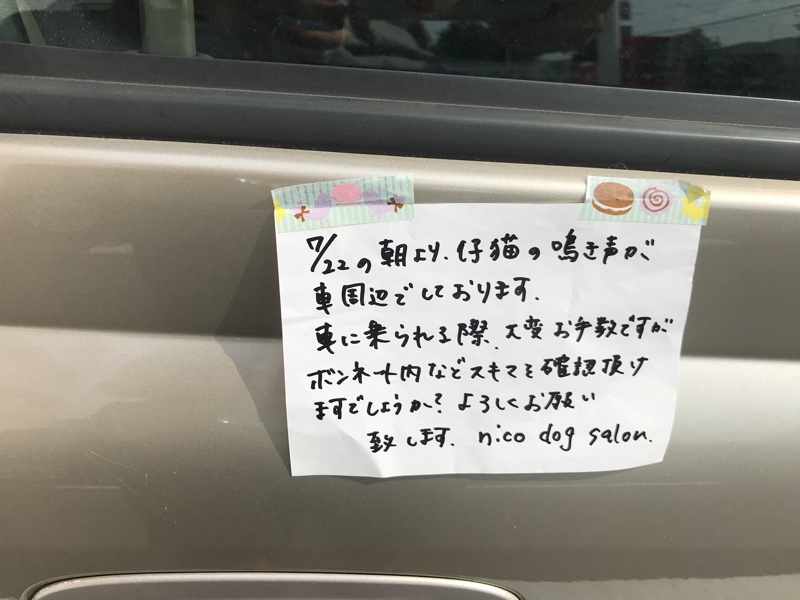 7/22の朝より、仔猫の鳴き声が
車周辺でしております。
車に乗られる際、大変お手数ですが
ボンネット内などスキマを確認頂け
ますでしょうか？よろしくお願い
致します。nico dog salon.